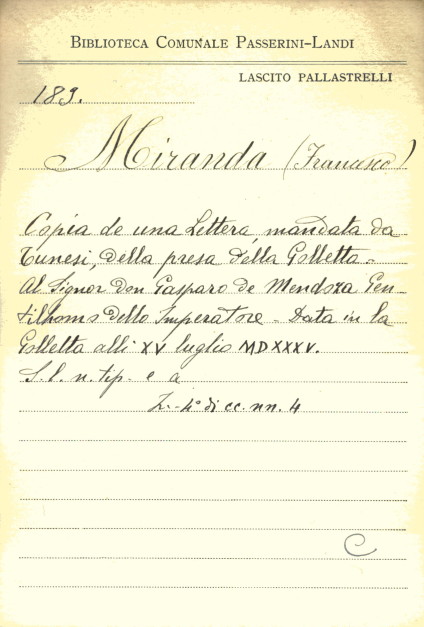 BIBLIOTECA COMUNALE PASSERINI-LANDI
LASCITO PALLASTRELLI
189.
Miranda (Francesco)
Copia de una Lettera, mandata da
Tunesi, della presa della Golletta -
Al Signor Don Gasparo de Mendoza Gen-
tilhomo dello Imperatore - Data in la
Golletta alli XV luglio MDXXXV.
S. l. n. tip. e a
in-4º di cc. nn. 4
C